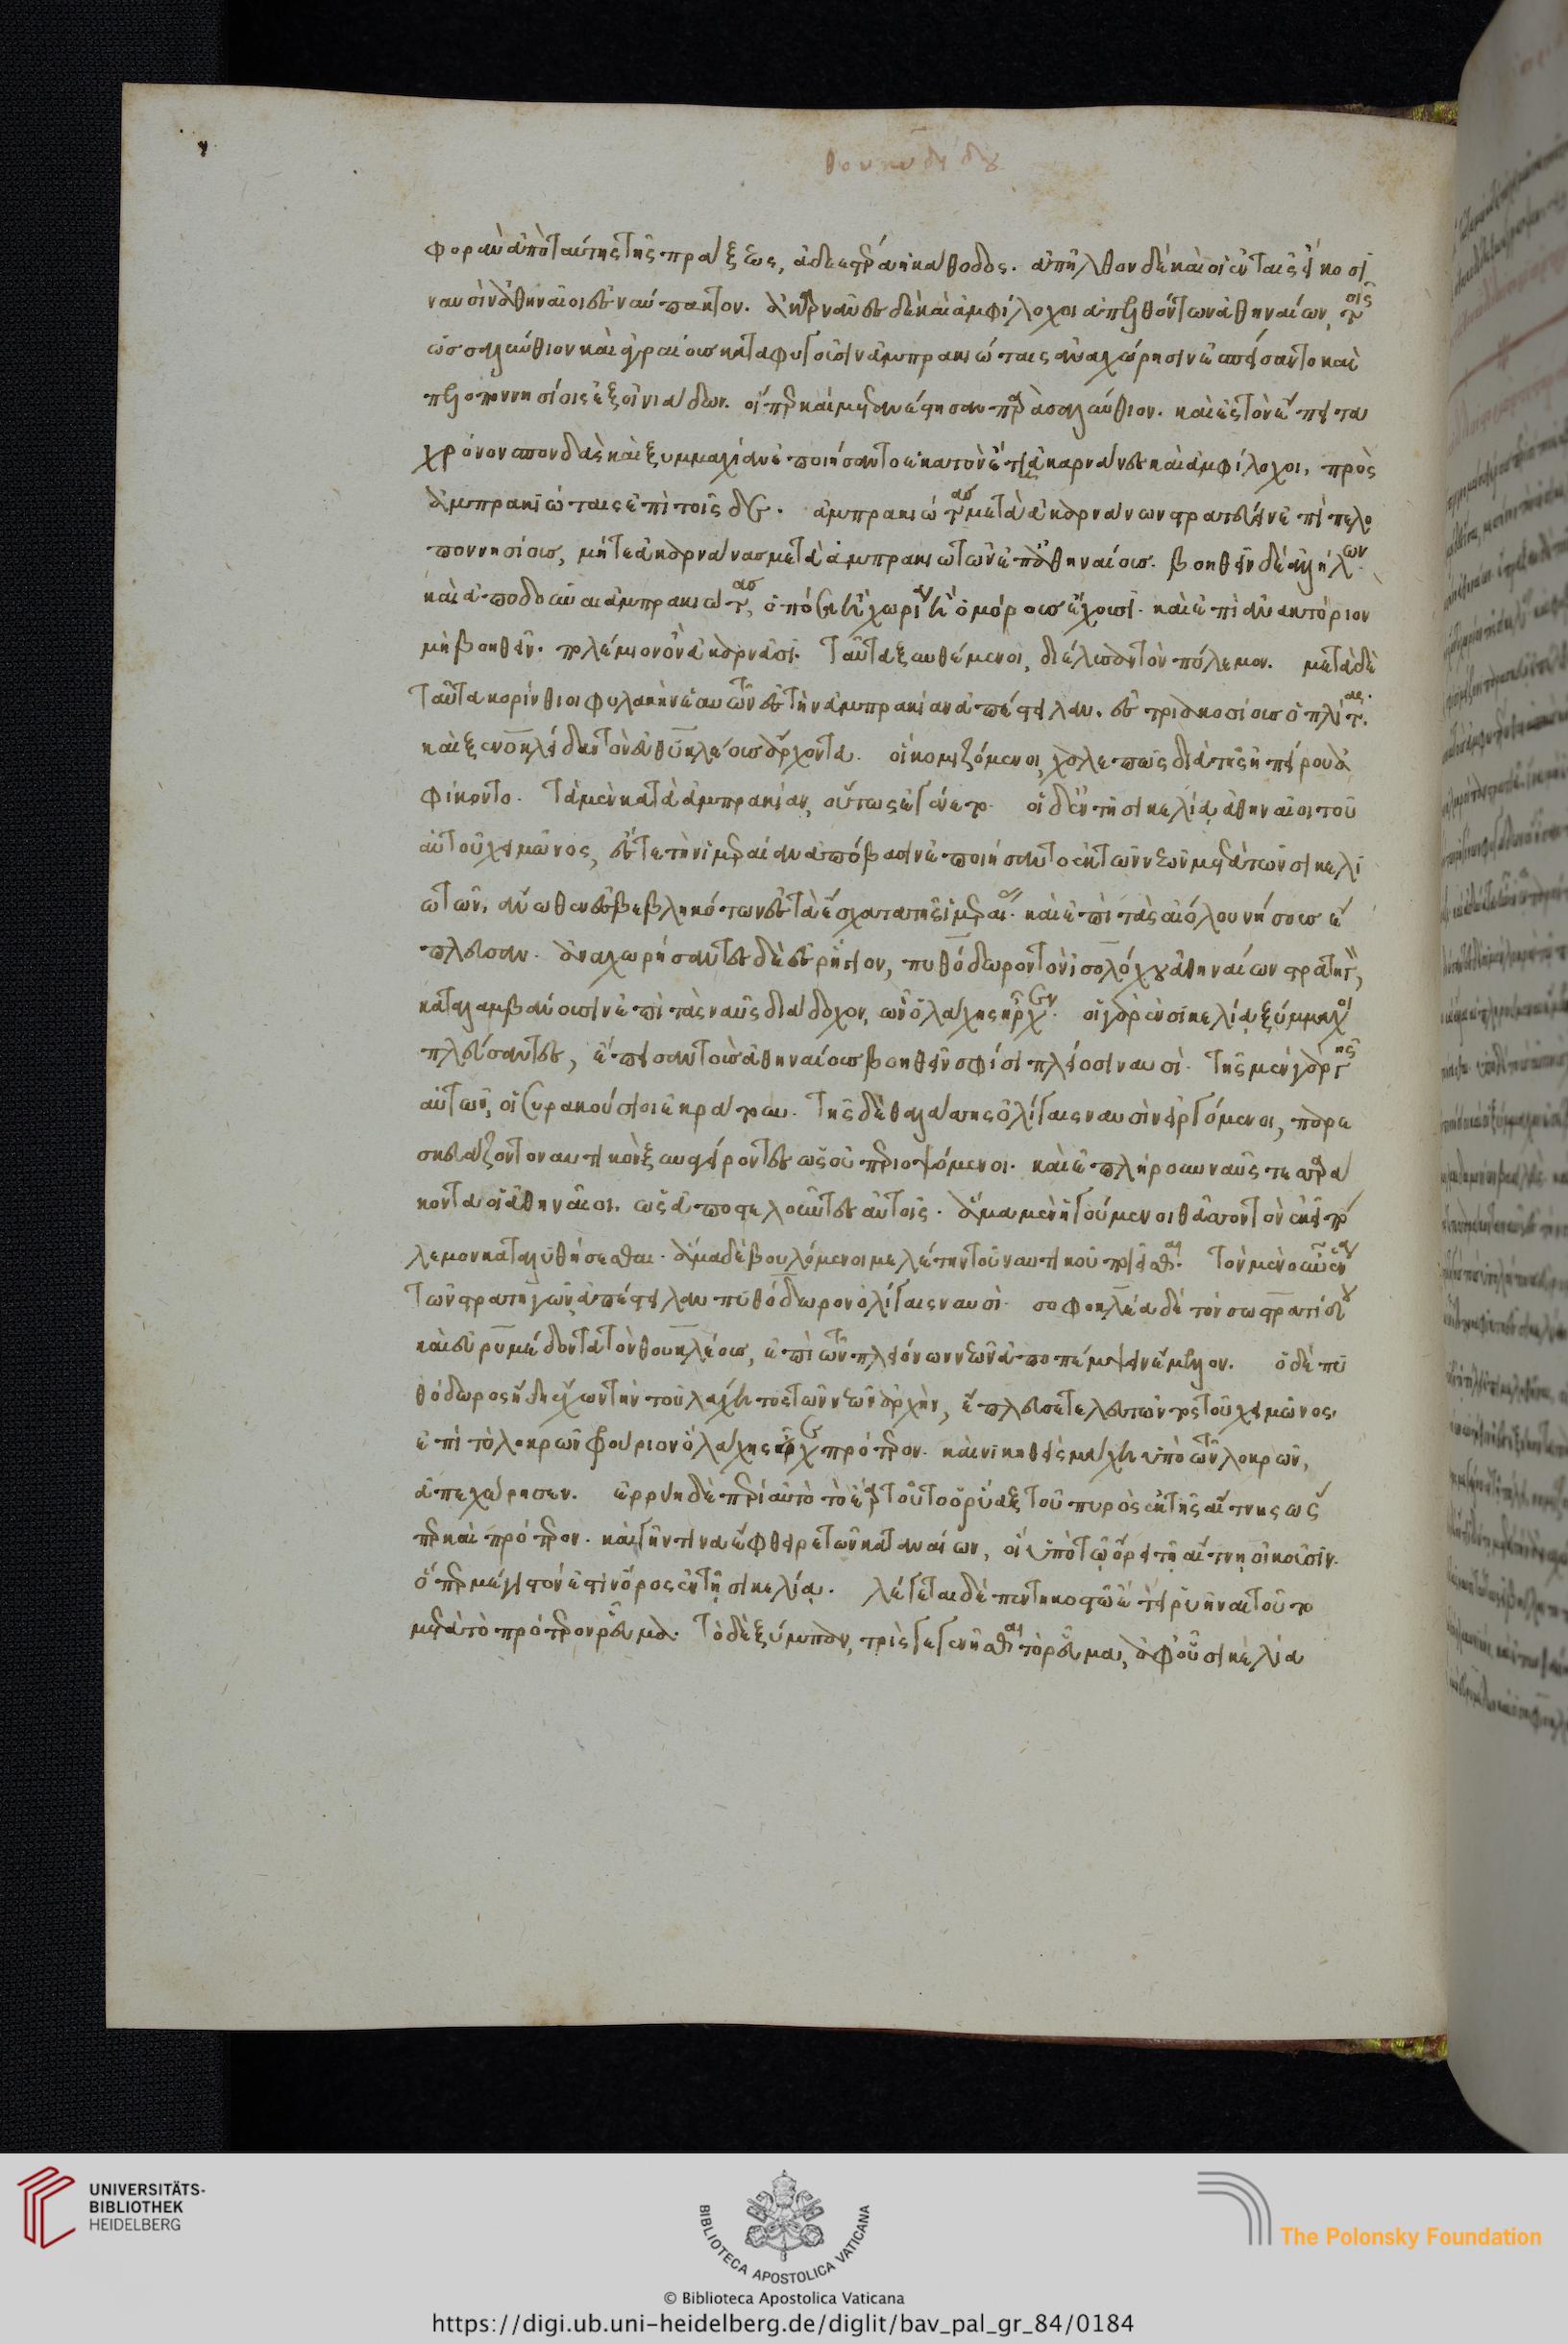 θουκυδίδου
φορὰν ἀπὸ ταύτης τῆς πράξεως, ἀδεεστέρα ἡ κάθοδος. ἀπῆλθον δὲ καὶ οἱ ἐν ταῖς εἴκοσι
ναυσὶν ἀθηναῖοι ἐς ναύπακτον. ἀκαρνᾶνες δὲ καὶ ἀμφίλοχοι ἀπελθόντων ἀθηναίων, τοῖς
ὡς σαλύνθιον καὶ ἀγραίους καταφυγοῦσιν ἀμπρακιώταις ἀναχώρησιν ἐσπείσαντο καὶ
πελοποννησίοις ἐξ οἰνιάδων. οἵπερ καὶ μετανέστησαν παρὰ σαλύνθιον. καὶ ἐς τὸν ἔπειτα
χρόνον σπονδὰς καὶ ξυμμαχίαν ἐποιήσαντο ἑκατὸν ἔτη ἀκαρνᾶνες καὶ ἀμφίλοχοι, πρὸς
ἀμπρακιώτας ἐπὶ τοῖσδε. ἀμπρακιώτας μετὰ ἀκαρνάνων στρατεύειν ἐπὶ πελο
ποννησίους, μήτε ἀκαρνάνας μετὰ ἀμπρακιωτῶν ἐπ' ἀθηναίους. βοηθεῖν δὲ ἀλλήλων.
καὶ ἀποδοῦναι ἀμπρακιώτας, ὁπόσα ἢ χωρία ἢ ὁμόρους ἔχουσι. καὶ ἐπὶ ἀνακτόριον
μὴ βοηθεῖν. πολέμιον ὂν ἀκαρνᾶσι. ταῦτα ξυνθέμενοι, διέλυσαν τὸν πόλεμον. μετὰ δὲ
ταῦτα κορίνθιοι φυλακὴν ἑαυτῶν ἐς τὴν ἀμπρακίαν ἀπέστειλαν. ἐς τριακοσίους ὁπλίτας.
καὶ ξενοκλείδην τὸν εὐθυκλέους ἄρχοντα. οἳ κομιζόμενοι, χαλεπῶς διὰ τῆς ἠπείρου ἀ
φίκοντο. τὰ μὲν κατὰ ἀμπρακίαν, οὕτως ἐγένετο. οἱ δ' ἐν τῇ σικελίᾳ ἀθηναῖοι τοῦ
αὐτοῦ χειμῶνος, ἔς τε τὴν ἱμεραίαν ἀπόβασιν ἐποιήσαντο ἐκ τῶν νεῶν μετὰ τῶν σικελι
ωτῶν, ἄνωθεν ἐσβεβληκότων ἐς τὰ ἔσχατα τῆς ἱμεραίας. καὶ ἐπὶ τὰς αἰόλου νήσους ἔ
πλευσαν. ἀναχωρήσαντες δὲ ἐς ῥήγιον, πυθόδωρον τὸν ἰσολόχου ἀθηναίων στρατηγὸν,
καταλαμβάνουσιν ἐπὶ τὰς ναῦς διάδοχον, ὧν ὁ λάχης ἦρχεν. οἱ γὰρ ἐν σικελίᾳ ξύμμαχοι
πλεύσαντες, ἔπεισαν τοὺς ἀθηναίους βοηθεῖν σφίσι πλείοσι ναυσί. τῆς μὲν γὰρ γῆς
αὐτῶν, οἱ συρακούσιοι ἐκράτουν. τῆς δὲ θαλάσσης ὀλίγαις ναυσὶν εἰργόμενοι, παρε
σκευάζοντο ναυτικὸν ξυναγείροντες ὡς οὐ περιοψόμενοι. καὶ ἐπλήρουν ναῦς τεσσαρά
κοντα οἱ ἀθηναῖοι. ὡς ἀποστελοῦντες αὐτοῖς. ἅμα μὲν ἡγούμενοι θᾶσσον τὸν ἐκεῖ πό
λεμον καταλυθήσεσθαι. ἅμα δὲ βουλόμενοι μελέτην τοῦ ναυτικοῦ ποιεῖσθαι. τὸν μὲν οὖν ἕνα
τῶν στρατηγῶν ἀπέστειλαν πυθόδωρον ὀλίγαις ναυσί. σοφοκλέα δὲ τὸν σωστρατίδου
καὶ εὐρυμέδοντα τὸν θουκλέους, ἐπὶ τῶν πλειόνων νεῶν ἀποπέμψειν ἔμελλον. ὁ δὲ πυ
θόδωρος ἤδη ἔχων τὴν τοῦ λάχητος τῶν νεῶν ἀρχὴν, ἔπλευσε τελευτῶντος τοῦ χειμῶνος,
ἐπὶ τὸ λοκρῶν φρούριον ὃ λάχης εἷλε πρότερον. καὶ νικηθεὶς μάχῃ ὑπὸ τῶν λοκρῶν,
ἀπεχώρησεν. ἐρρύη δὲ περὶ αὐτὸ τὸ ἔαρ τοῦτο ὁ ῥύαξ τοῦ πυρὸς ἐκ τῆς αἴτνης ὥς
περ καὶ πρότερον. καὶ γῆν τινα ἔφθειρε τῶν καταναίων, οἳ ὑπὸ τῷ ὄρει τῇ αἴτνῃ οἰκοῦσιν.
ὅπερ μέγιστόν ἐστιν ὄρος ἐν τῇ σικελίᾳ. λέγεται δὲ πεντηκοστῷ ἔτει ῥυῆναι τοῦτο
μετὰ τὸ πρότερον ῥεῦμα. τὸ δὲ ξύμπαν, τρὶς γεγενῆσθαι τὸ ῥεῦμα, ἀφ' οὗ σικελία
UNIVERSITÄTS-
BIBLIOTHEK
HEIDELBERG
BIBLIOTECA APOSTOLICA VATICANA
The Polonsky Foundation
© Biblioteca Apostolica Vaticana
https://digi.ub.uni-heidelberg.de/diglit/bav_pal_gr_84/0184